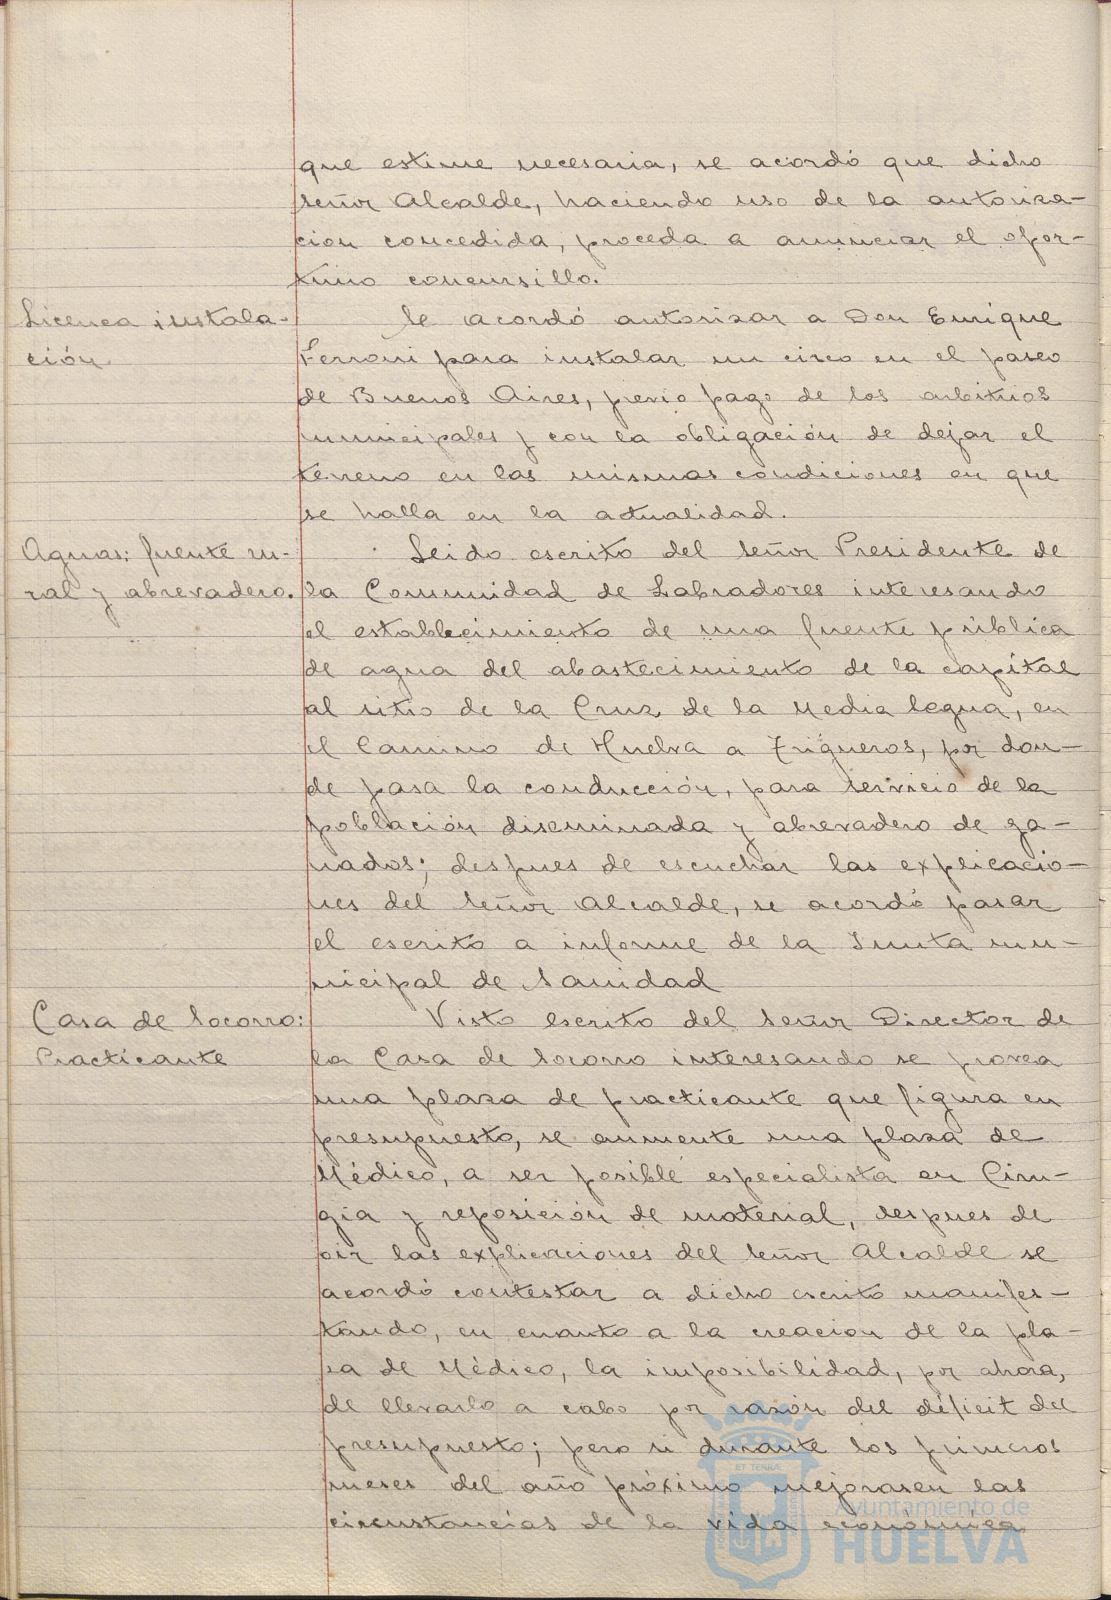 que estime necesaria, se acordó que dicho
señor Alcalde, haciendo uso de la autoriza-
cion concedida, proceda a anunciar el opor-
tuno concursillo.
Licenca instala-
ción
Se acordó autorizar a Don Enrique
Ferroni para instalar un circo en el paseo
de Buenos Aires, previo pago de los arbitrios
municipales y con la obligación de dejar el
terreno en las mismas condiciones en que
se halla en la actualidad.
Aguas: fuente ru-
ral y abrevadero.
Leido escrito del señor Presidente de
la Comunidad de Labradores interesando
el establecimiento de una fuente pública
de agua del abastecimiento de la capital
al sitio de la Cruz de la Media legua, en
el Camino de Huelva a Trigueros, por don-
de pasa la conducción, para servicio de la
población diseminada y abrevadero de ga-
nados; despues de escuchar las explicacio-
nes del señor Alcalde, se acordó pasar
el escrito a informe de la Junta mu-
nicipal de Sanidad
Casa de Socorro:
Practicante
Visto escrito del señor Director de
la Casa de Socorro interesando se provea
una plaza de practicante que figura en
presupuesto, se aumente una plaza de
Médico, a ser posible especialista en Ciru-
gia y reposición de material, despues de
oir las explicaciones del señor Alcalde se
acordó contestar a dicho escrito manifes-
tando, en cuanto a la creacion de la pla-
za de Médico, la imposibilidad, por ahora,
de llevarlo a cabo por razón del déficit del
presupuesto; pero si durante los primeros
meses del año próximo mejorasen las
circunstancias de la vida económica
Ayuntamiento de
HUELVA